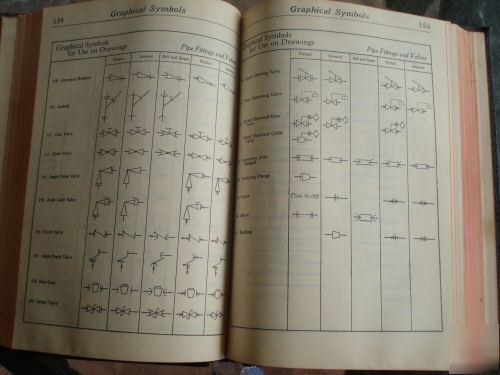 134
Graphical Symbols
Graphical Symbols
for Use on Drawings
Pipe Fittings and Valves
Flanged
Screwed
Bell and Spigot
Welded
Eccentric Reducer
Lateral
Gate Valve
Globe Valve
Angle Globe Valve
Angle Gate Valve
Check Valve
Angle Check Valve
Stop Cock
Safety Valve
Graphical Symbols
155
Graphical Symbols
for Use on Drawings
Pipe Fittings and Valves
Flanged
Screwed
Bell and Spigot
Welded
Quick Opening Valve
Float Operating Valve
Motor Operated Gate
Valve
Motor Operated Globe
Valve
Expansion Joint
Flanged
Reducing Flange
Union
(See 26-Off)
Sleeve
Bushing